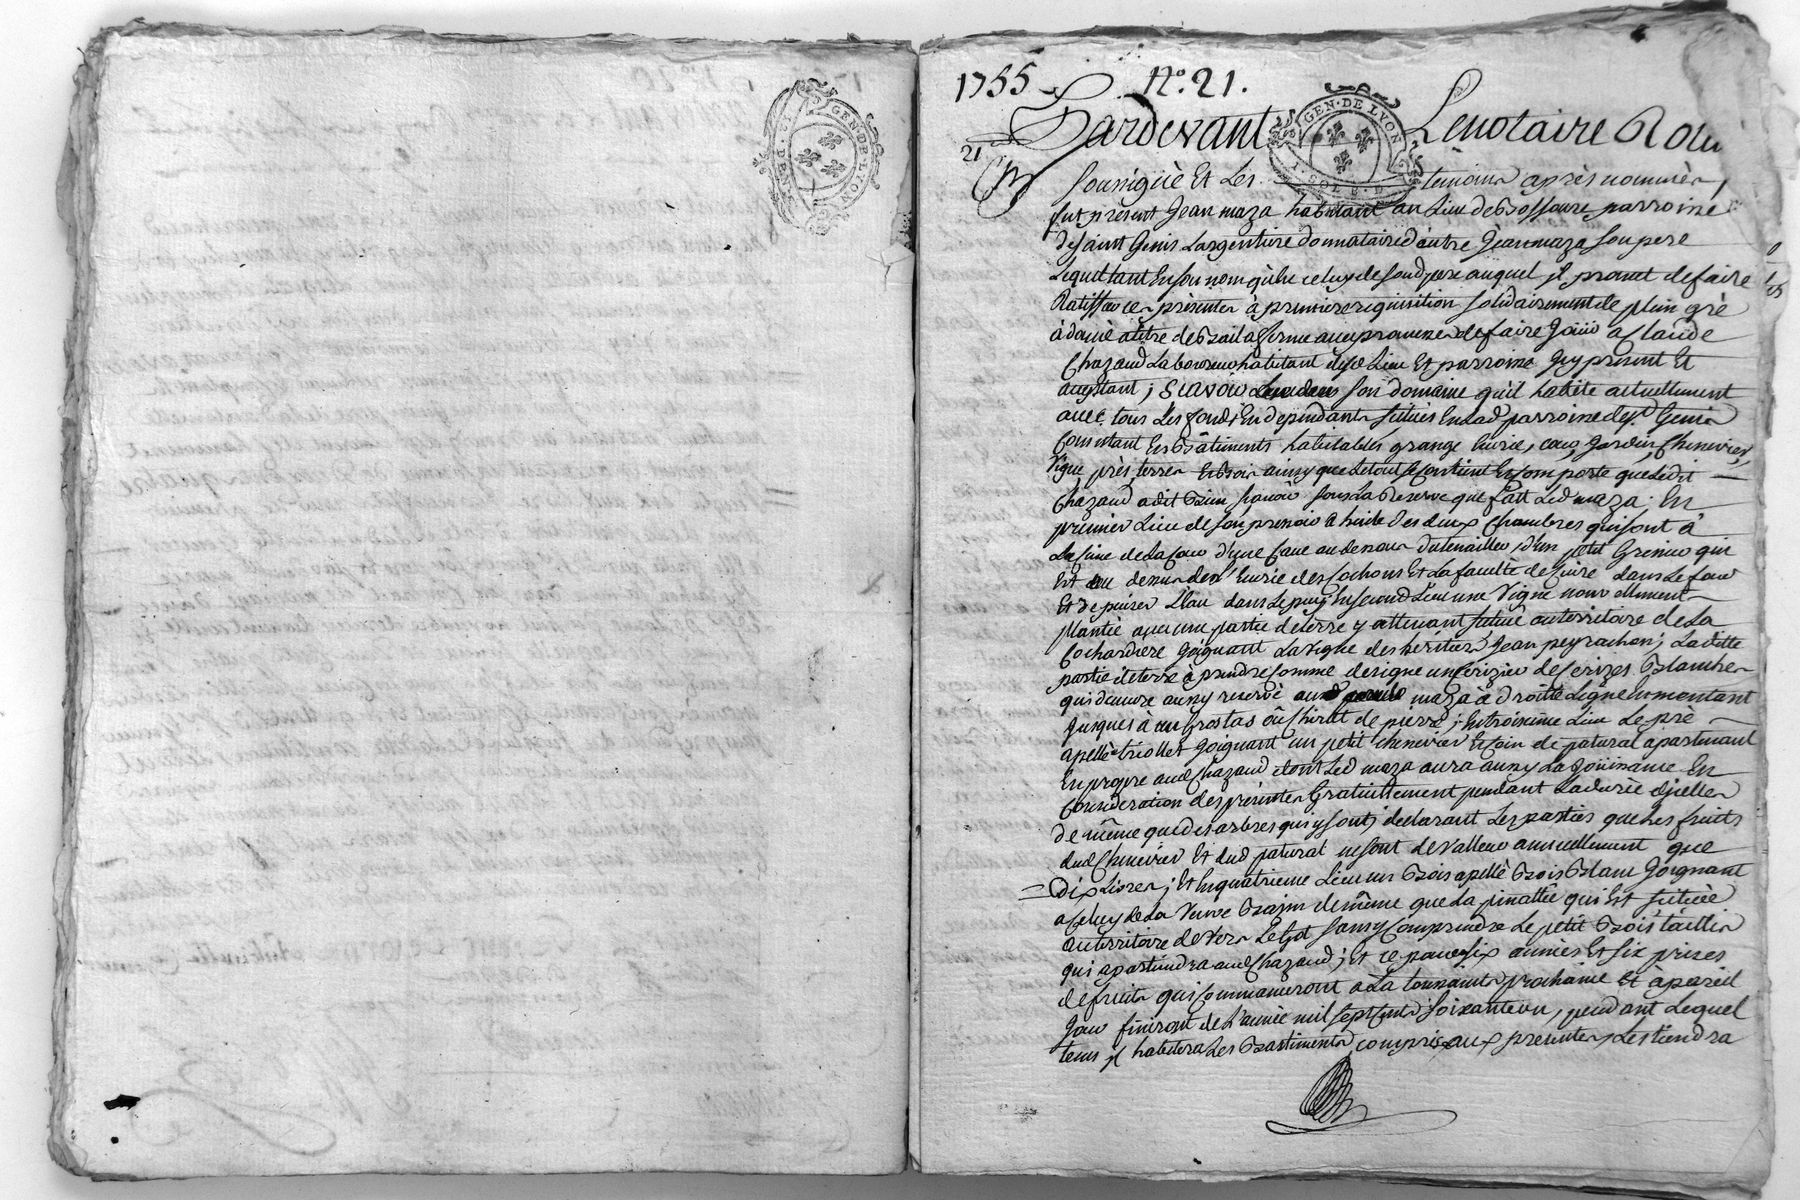 GEN·DE·LYON
1755 N.° 21.
GEN·DE LYON
1. SOL 8. D.
Pardevant Lenotaire Roial
21
soussigné Et Les temoins après nommés,
fut present Jean maza habitant au Lieu de Bossoure parroisse
de saint Genis Largentiere donnataire d'autre Jean maza son pere
Lequel tant En son nom qu'en celuy de sond pere auquel jl promet de faire
Ratiffier ces presentes à premiere requisition solidairement de plein gré
à donné à titre de Bail à ferme avec promesse de faire Jouir a Claude
Chazaud Laboureur habitant dud Lieu Et parroisse Jcy present Et
acceptant; Scavoir son domaine qu'il habite actuellement
avec tous Les fonds En dependants situés En Lad parroisse de s.t Genis
Consistant En Bâtiments habitables grange Ecurie, cour, Jardin, Chenevier,
Vigne près, terres Et Bois ainsy que Letout se contient Et comporte que Ledit
Chazaud a dit Bien scavoir sous La Reserve que fait Led maza; En
premier Lieu de son pressoir à huile des deux Chambres qui sont à
La Cime de La Cour d'une Cave au dessous du tenailler, d'un petit Grenier qui
Est au dessus de l'Ecurie des Cochons Et La faculté de Cuire dans Le four
Et de puiser L'eau dans Le puy En second Lieu une Vigne nouvellement
plantée avec une partie de terre y attenant située au territoire de La
Cochardiere Joignant La Vigne des héritiers Jean peyrachon; Laditte
partie de terre à prendre Comme designe un Cerizier de Cerizes Blanches
qui demeure aussy reservé aud maza à droitte Ligne En montant
Jusques à un Gros tas où Chirat de pierre; En troisième Lieu Le près
apellé triollet Joignant un petit Chenevier Et Coin de patural apartenant
En propre aud Chazaud dont Led maza aura aussy La Joüissance En
Consideration des presentes Gratuittement pendant La durée d'jcelles
de même que des arbres qui y sont, declarant Les parties que Les fruits
dud Chenevier Et dud patural ne sont de Valleur annuellement que
Dix Livres; Et En quatrieme Lieu un Bois apellé Bois Blanc Joignant
a Celuy de La Veuve Bazin de même que La pinattée qui Est située
au territoire de Vers Le Got sans y Comprendre Le petit Bois taillis
qui apartiendra aud Chazaud; Et ce pour six années Et six prises
de fruits qui Commanceront a La toussaints prochaine Et à pareil
Jour finiront de L'année mil sept Cents soixante un, pendant Lequel
tems jl habitera Les Bastiments compris aux presentes, Les tiendra